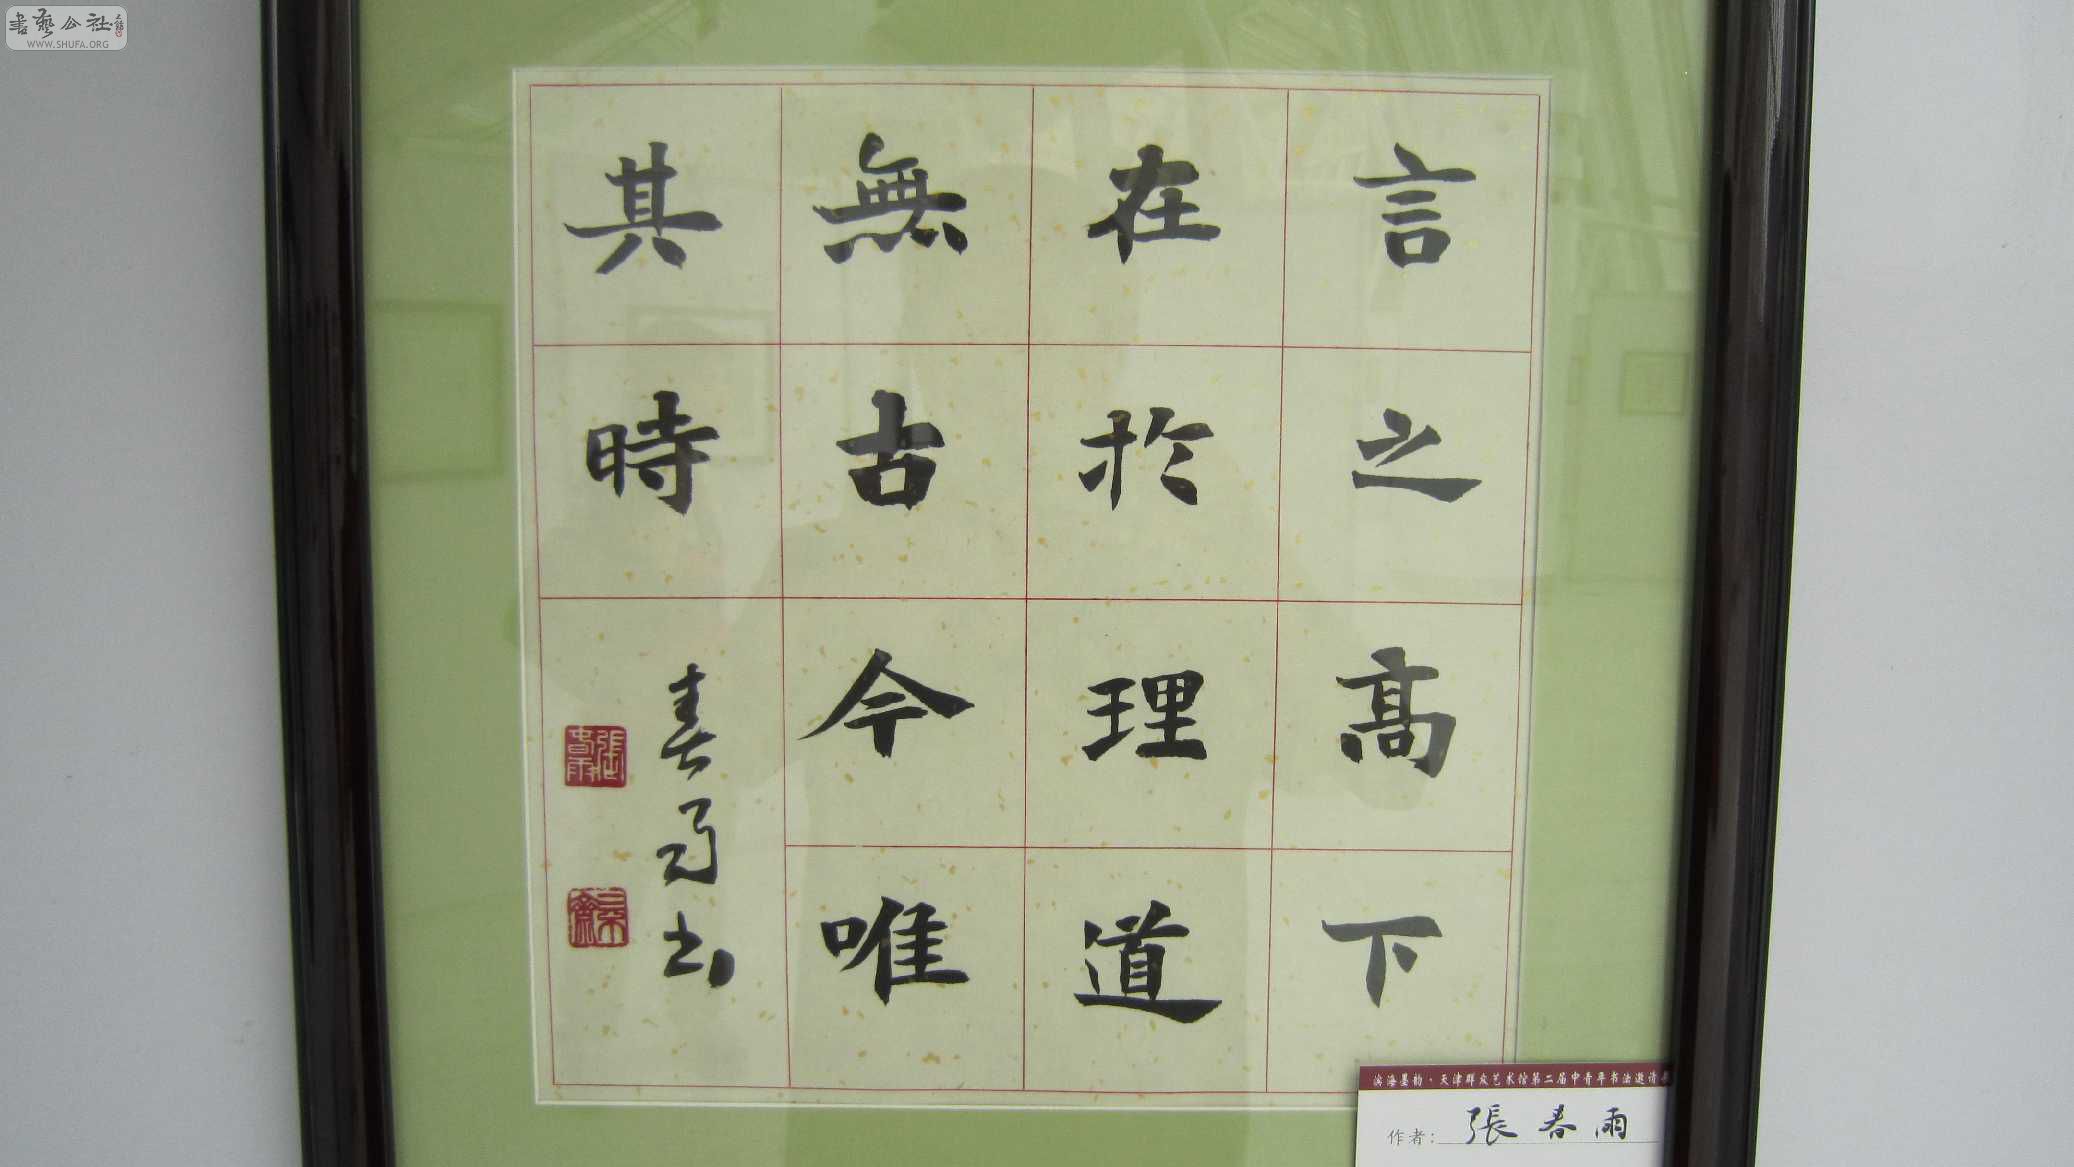 言之高下
在於理道
無古今唯
其時
春雨书
張春雨
滨海墨韵·天津群众艺术馆第二届中青年书法邀请
作者：張春雨
書藝公社
WWW.SHUFA.ORG